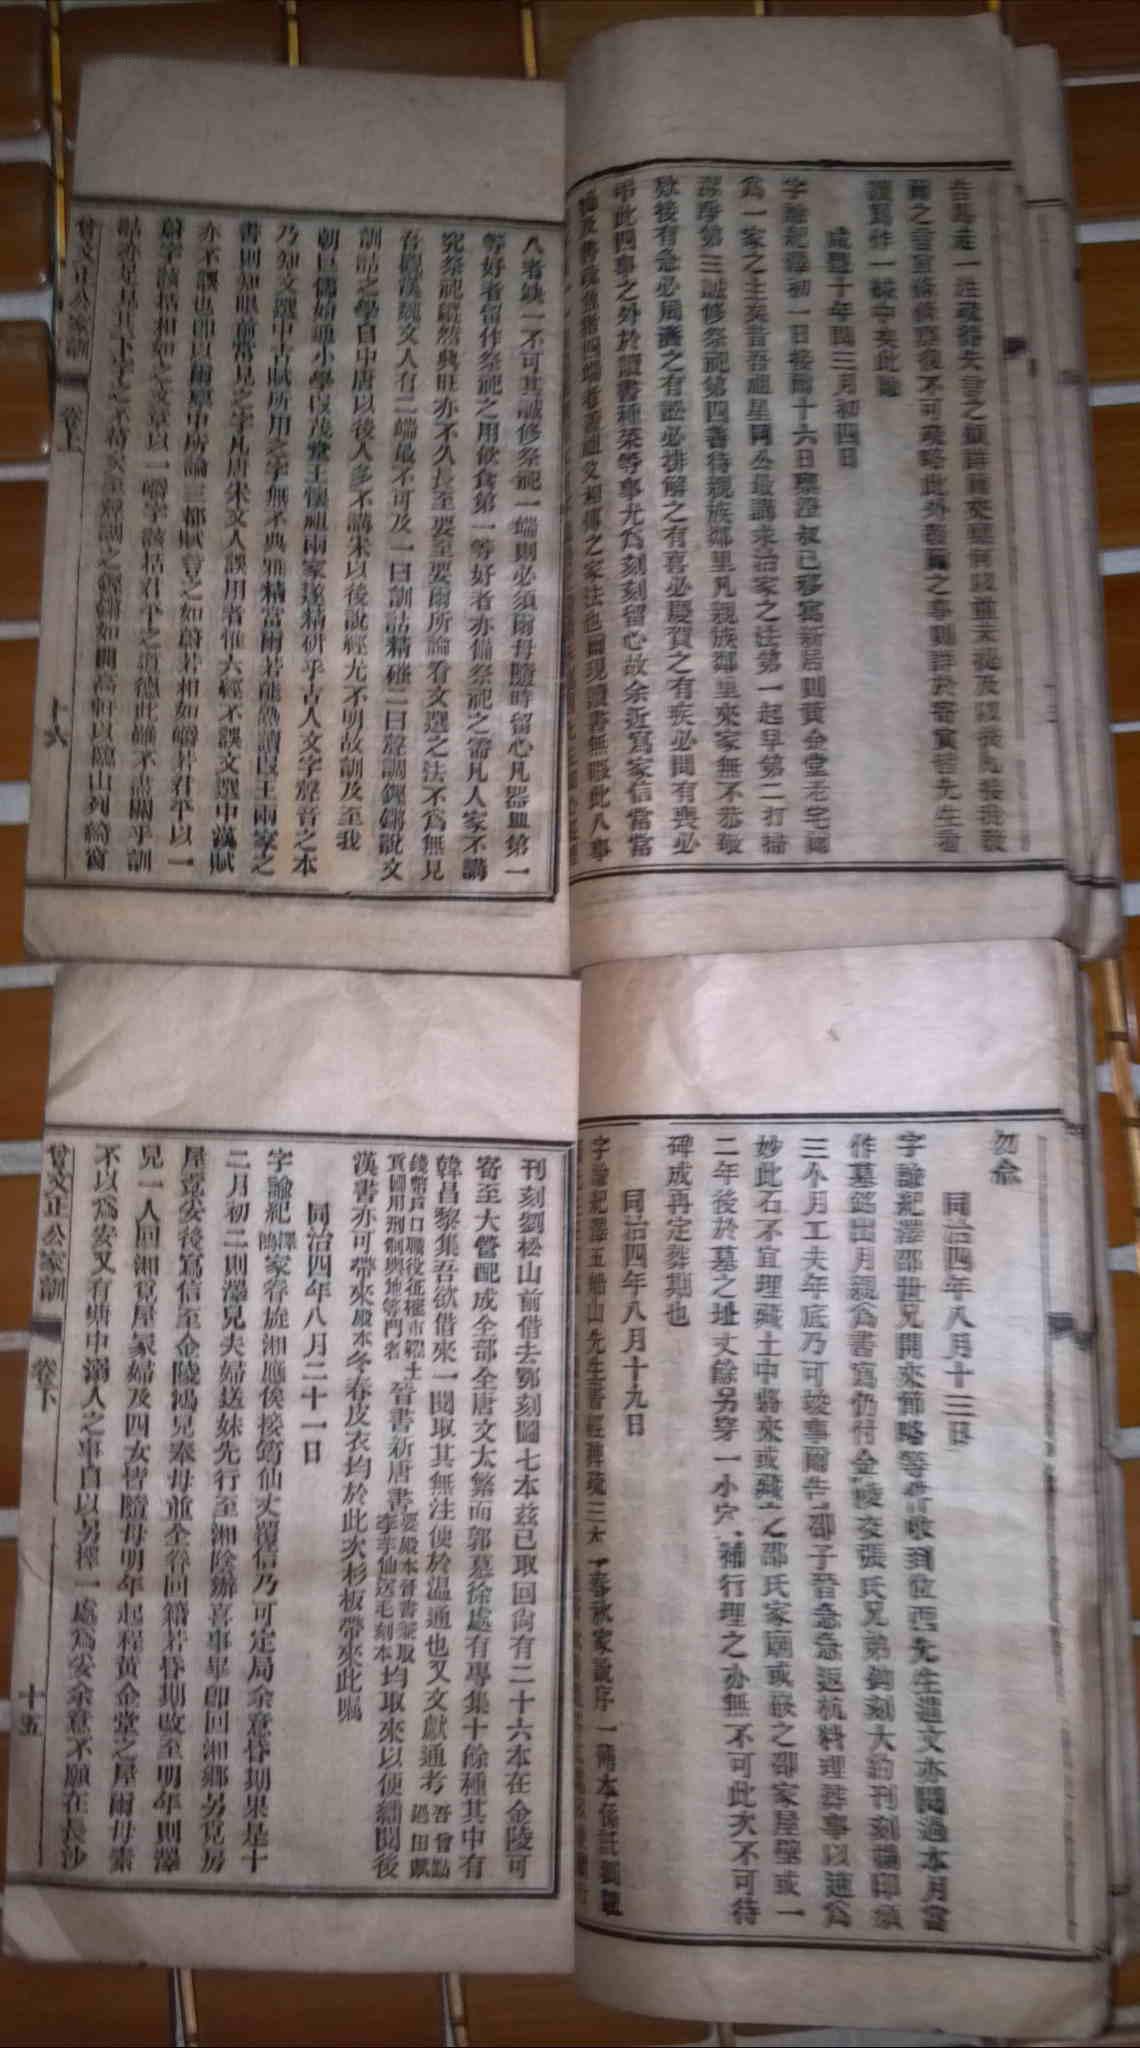 讀寫作一緘中矣此諭
咸豐十年閏三月初四日
字諭紀澤初一日接爾十六日稟澄叔已移寓新居則黃金堂老宅爾
為一家之主矣昔吾祖星岡公最講求治家之法第一起早第二打掃
潔淨第三誠修祭祀第四善待親族鄰里凡親族鄰里來家無不恭敬
款後有急必周濟之有訟必排解之有喜必慶賀之有疾必問有喪必
弔此四事之外於讀書種菜等事尤為刻刻留心故余近寫家信常常
提及書蔬魚豬四端者蓋祖父相傳之家法也爾現讀書無暇此八事
八者缺一不可其誠修祭祀一端則必須爾母隨時留心凡器皿第一
等好者留作祭祀之用飲食第一等好者亦備祭祀之需凡人家不講
究祭祀縱然興旺亦不久長至要至要爾所論看文選之法不為無見
吾觀漢魏文人有二端最不可及一曰訓詁精確二曰聲調鏗鏘說文
訓詁之學自中唐以後人多不講宋以後說經尤不明故訓及至我
朝巨儒始通小學段茂堂王懷祖兩家遂精研乎古人文字聲音之本
乃知文選中古賦所用之字無不典雅精當爾若能熟讀段王兩家之
書則知眼前常見之字凡唐宋文人誤用者惟六經不誤文選中漢賦
亦不誤也即以爾稟中所論三都賦言之如蔚若相如皭若君平以一
蔚字該括相如之文章以一皭字該括君平之道德此雖不盡關乎訓
詁亦足見其下字之不苟矣至聲調之鏗鏘如開高軒以臨山列綺窗
曾文正公家訓 卷上 十六
勿僉
同治四年八月十三日
字諭紀澤邵世兄開來節略等件收到位西先生遺文亦閱過本月當
作墓銘出月親為書寫仍付金陵交張氏兄弟鉤刻大約刊刻搨印須
三個月工夫年底乃可竣事爾告邵子晉急急返杭料理葬事以速為
妙此石不宜埋藏土中將來或藏之邵氏家廟或嵌之邵家屋壁或一
二年後於墓之址丈餘另穿一小穴補行埋之亦無不可此次不可待
碑成再定葬期也
同治四年八月十九日
字諭紀澤王船山先生書經稗疏三本春秋家說序一薄本係託劉韞
刊刻劉松山前借去鄂刻圖七本茲已取回尚有二十六本在金陵可
寄至大營配成全部全唐文太繁而郭慕徐處有專集十餘種其中有
韓昌黎集吾欲借來一閱取其無注便於溫誦也又文獻通考吾曾點過田賦
錢幣戶口職役征榷市糴土貢國用刑制輿地等門者晉書新唐書要殿本晉書兼取李芋仙送毛刻本均取來以便繙閱後
漢書亦可帶來殿本冬春皮衣均於此次杉板帶來此囑
同治四年八月二十一日
字諭紀澤鴻家眷旋湘應俟接筠仙丈覆信乃可定局余意昏期果是十
二月初二則澤兒夫婦送妹先行至湘陰辦喜事畢即回湘鄉另覓房
屋覓妥後寫信至金陵鴻兒奉母並全眷回籍若昏期改至明年則澤
兒一人回湘覓屋冢婦及四女皆隨母明年起程黃金堂之屋爾母素
不以為安又有塘中溺人之事自以另擇一處為妥余意不願在長沙
曾文正公家訓 卷下 十五